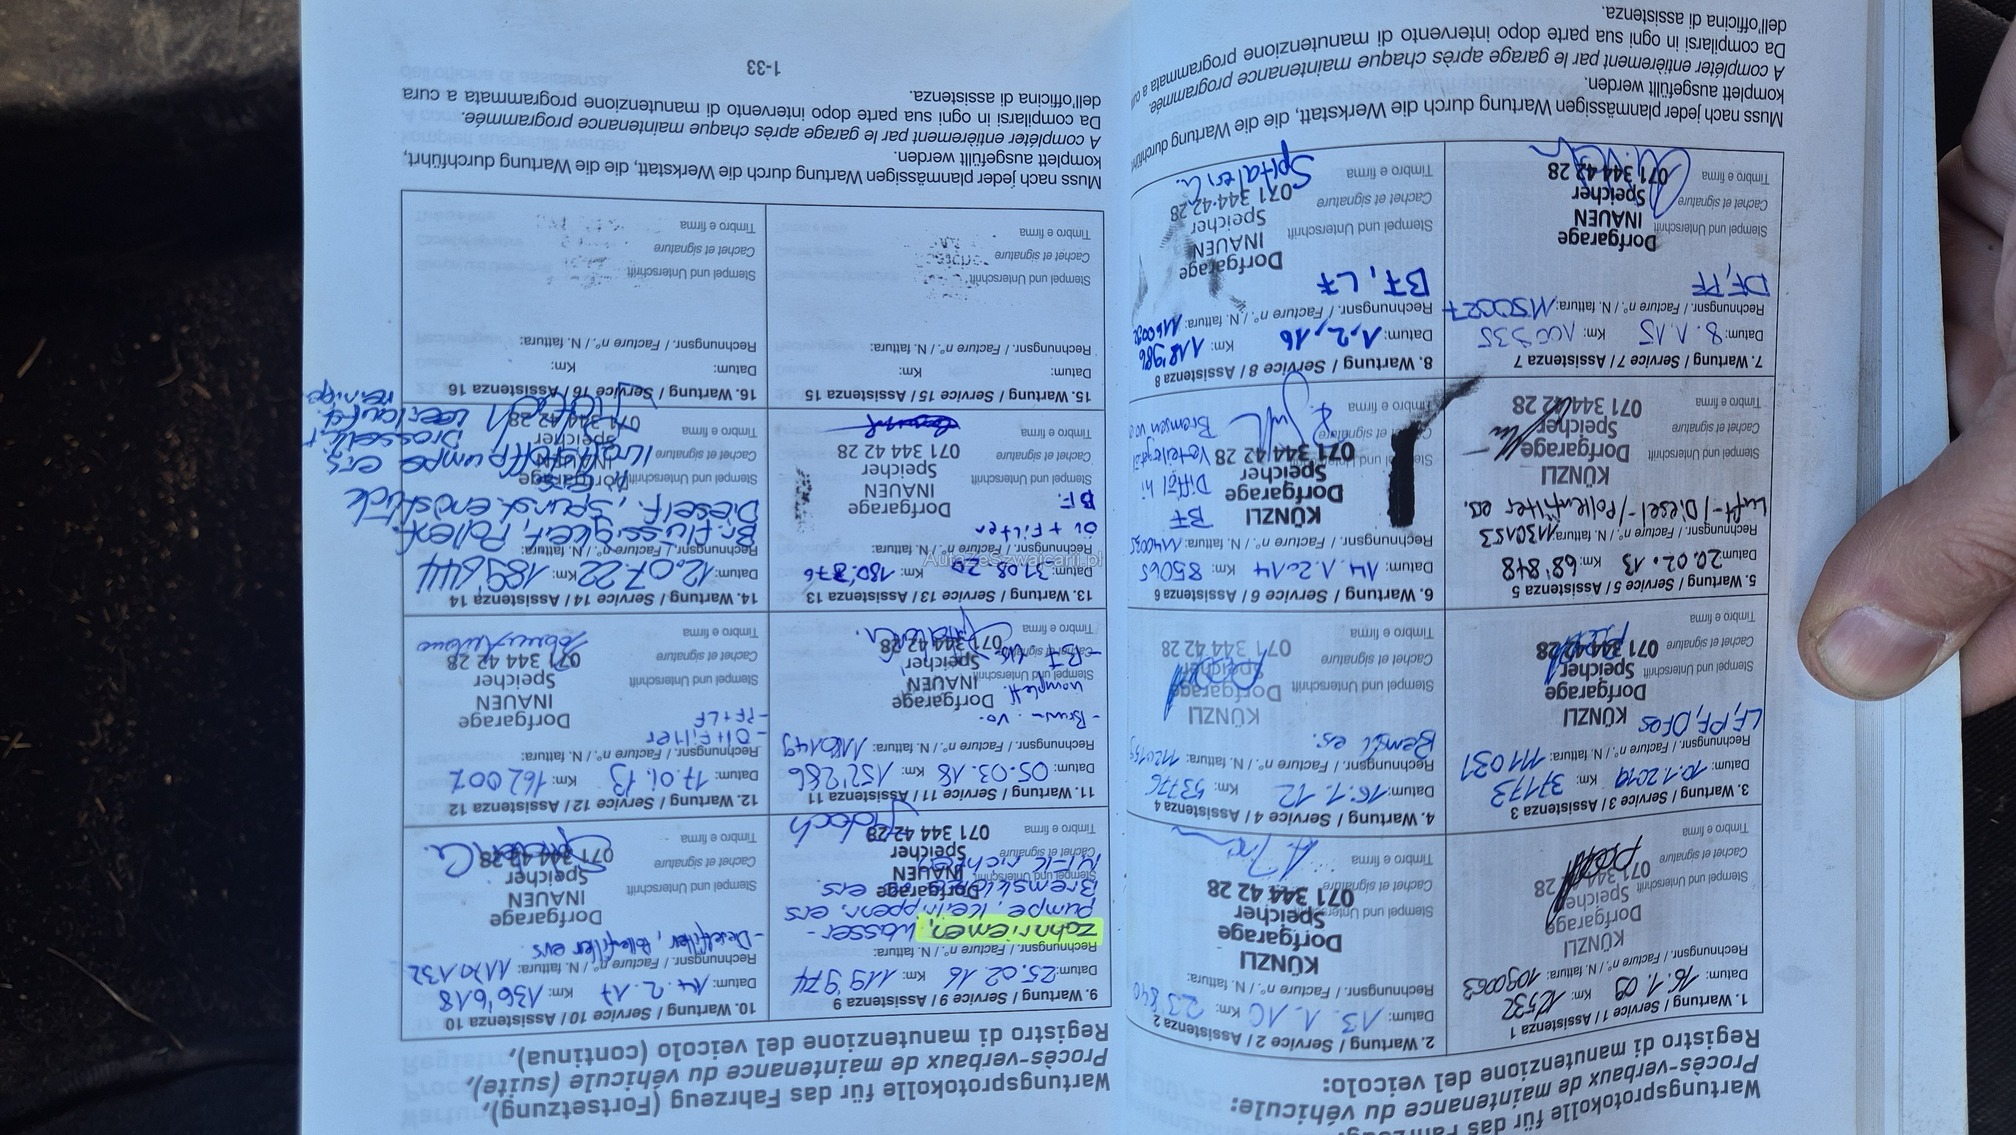 Wartungsprotokolle für das Fahrzeug:
Procès-verbaux de maintenance du véhicule:
Registro di manutenzione del veicolo:
1. Wartung / Service 1 / Assistenza 1
Datum: 16.1.09 Km: 12532
Rechnungsnr. / Facture n°. / N. fattura: 1090063
KÜNZLI
Dorfgarage
Speicher
071 344 42 28
Stempel und Unterschrift
Cachet et signature
Timbro e firma
2. Wartung / Service 2 / Assistenza 2
Datum: 13.1.10 Km: 23'840
Rechnungsnr. / Facture n°. / N. fattura:
KÜNZLI
Dorfgarage
Speicher
071 344 42 28
Stempel und Unterschrift
Cachet et signature
Timbro e firma
3. Wartung / Service 3 / Assistenza 3
Datum: Km: 37173
Rechnungsnr. / Facture n°. / N. fattura: 111031
LF, PF, DF es
KÜNZLI
Dorfgarage
Speicher
071 344 42 28
Stempel und Unterschrift
Cachet et signature
Timbro e firma
4. Wartung / Service 4 / Assistenza 4
Datum: 16.1.12 Km: 53776
Rechnungsnr. / Facture n°. / N. fattura:
es.
KÜNZLI
Dorfgarage
Speicher
071 344 42 28
Stempel und Unterschrift
Cachet et signature
Timbro e firma
5. Wartung / Service 5 / Assistenza 5
Datum: 20.02.13 Km: 68'848
Rechnungsnr. / Facture n°. / N. fattura: 1130153
Luft-/Diesel-/Pollenfilter es.
KÜNZLI
Dorfgarage
Speicher
071 344 42 28
Stempel und Unterschrift
Cachet et signature
Timbro e firma
6. Wartung / Service 6 / Assistenza 6
Datum: 14.1.2014 Km: 85065
Rechnungsnr. / Facture n°. / N. fattura: 1140035
BF
Difföl hi
Bremsen vo
KÜNZLI
Dorfgarage
Speicher
071 344 42 28
Cachet et signature
Timbro e firma
7. Wartung / Service 7 / Assistenza 7
Datum: 8.1.15 Km: 100935
Rechnungsnr. / Facture n°. / N. fattura: 1150027
DF, PF
Dorfgarage
INAUEN
Speicher
071 344 42 28
Stempel und Unterschrift
Cachet et signature
Timbro e firma
8. Wartung / Service 8 / Assistenza 8
Datum: 1.2.16 Km: 118'986
Rechnungsnr. / Facture n°. / N. fattura:
BF, LF
Dorfgarage
INAUEN
Speicher
071 344 42 28
Stempel und Unterschrift
Cachet et signature
Timbro e firma
Muss nach jeder planmässigen Wartung durch die Werkstatt, die die Wartung durchführt,
komplett ausgefüllt werden.
A compléter entièrement par le garage après chaque maintenance programmée.
Da compilarsi in ogni sua parte dopo intervento di manutenzione programmata a cura
dell'officina di assistenza.
Wartungsprotokolle für das Fahrzeug (Fortsetzung),
Procès-verbaux de maintenance du véhicule (suite),
Registro di manutenzione del veicolo (continua),
9. Wartung / Service 9 / Assistenza 9
Datum: 25.02.16 Km: 119'974
Rechnungsnr. / Facture n°. / N. fattura:
Zahnriemen, Wasser-
pumpe, Keilrippenr. ers
Dorfgarage
INAUEN
Speicher
071 344 42 28
Stempel und Unterschrift
Cachet et signature
Timbro e firma
10. Wartung / Service 10 / Assistenza 10
Datum: 14.2.17 Km: 136'618
Rechnungsnr. / Facture n°. / N. fattura: 1170132
- Dieselfilter, Pollenfilter ers.
Dorfgarage
INAUEN
Speicher
071 344 42 28
Stempel und Unterschrift
Cachet et signature
Timbro e firma
11. Wartung / Service 11 / Assistenza 11
Datum: 05.03.18 Km: 152'286
Rechnungsnr. / Facture n°. / N. fattura: 1180149
- Brems. vo.
komplett
- BF
Dorfgarage
INAUEN
Speicher
071 344 42 28
Stempel und Unterschrift
Cachet et signature
Timbro e firma
12. Wartung / Service 12 / Assistenza 12
Datum: 17.01.19 Km: 162007
Rechnungsnr. / Facture n°. / N. fattura:
- Öl+Filter
- PF+LF
Dorfgarage
INAUEN
Speicher
071 344 42 28
Stempel und Unterschrift
Cachet et signature
Timbro e firma
13. Wartung / Service 13 / Assistenza 13
Datum: 31.08.20 Km: 180'876
Rechnungsnr. / Facture n°. / N. fattura:
Öl + Filter
BF.
Dorfgarage
INAUEN
Speicher
071 344 42 28
Stempel und Unterschrift
Cachet et signature
Timbro e firma
14. Wartung / Service 14 / Assistenza 14
Datum: 12.07.22 Km: 189644
Rechnungsnr. / Facture n°. / N. fattura:
Br. Flüssigkeit, Pollenf.
Dieself., Spurst.endstück
Kraftstoffpumpe ers
Dorfgarage
INAUEN
Speicher
071 344 42 28
Stempel und Unterschrift
Cachet et signature
Timbro e firma
15. Wartung / Service 15 / Assistenza 15
Datum: Km:
Rechnungsnr. / Facture n°. / N. fattura:
Stempel und Unterschrift
Cachet et signature
Timbro e firma
16. Wartung / Service 16 / Assistenza 16
Datum: Km:
Rechnungsnr. / Facture n°. / N. fattura:
Stempel und Unterschrift
Cachet et signature
Timbro e firma
Muss nach jeder planmässigen Wartung durch die Werkstatt, die die Wartung durchführt,
komplett ausgefüllt werden.
A compléter entièrement par le garage après chaque maintenance programmée.
Da compilarsi in ogni sua parte dopo intervento di manutenzione programmata a cura
dell'officina di assistenza.
1-33
AutazeSzwajcarii.pl